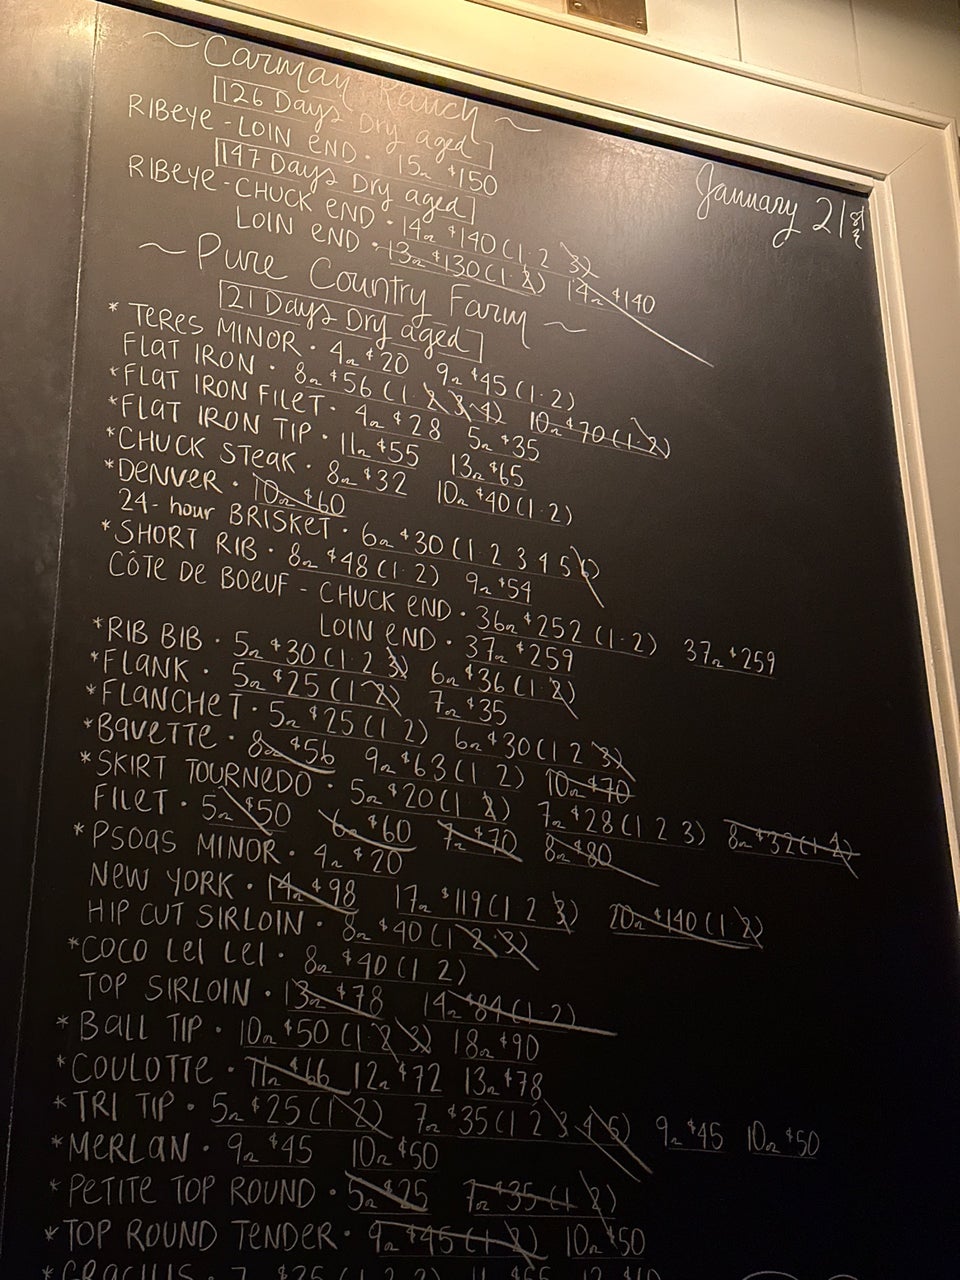 ~ Carman Ranch ~
126 Days Dry aged
RIBEYE - LOIN END · 15oz $150
147 Days Dry aged
RIBEYE - CHUCK END · 14oz $140 (1·2 3)
LOIN END · 13oz $130 (1·2) 14oz $140
January 21st
~ Pure Country Farm ~
21 Days Dry aged
* TERES MINOR · 4oz $20 9oz $45 (1·2)
FLAT IRON · 8oz $56 (1·2 3 4) 10oz $70 (1·2)
*FLAT IRON FILET · 4oz $28 5oz $35
*FLAT IRON TIP · 11oz $55 13oz $65
*CHUCK STEAK · 8oz $32 10oz $40 (1·2)
*DENVER · 10oz $60
24-hour BRISKET · 6oz $30 (1·2 3 4 5 6)
*SHORT RIB · 8oz $48 (1·2) 9oz $54
CÔTE DE BOEUF - CHUCK END · 36oz $252 (1·2) 37oz $259
LOIN END · 37oz $259
*RIB BIB · 5oz $30 (1·2 3) 6oz $36 (1·2)
*FLANK · 5oz $25 (1·2) 7oz $35
*FLANCHET · 5oz $25 (1 2) 6oz $30 (1 2 3)
*BAVETTE · 8oz $56 9oz $63 (1 2) 10oz $70
*SKIRT TOURNEDO · 5oz $20 (1 2) 7oz $28 (1 2 3) 8oz $32 (1 2)
FILET · 5oz $50 6oz $60 7oz $70 8oz $80
*PSOAS MINOR · 4oz $20
NEW YORK · 14oz $98 17oz $119 (1 2 3) 20oz $140 (1 2)
HIP CUT SIRLOIN · 8oz $40 (1 2 3)
*COCO LEI LEI · 8oz $40 (1 2)
TOP SIRLOIN · 13oz $78 14oz $84 (1 2)
*BALL TIP · 10oz $50 (1 2 3) 18oz $90
*COULOTTE · 11oz $66 12oz $72 13oz $78
*TRI TIP · 5oz $25 (1 2) 7oz $35 (1 2 3 4 5) 9oz $45 10oz $50
*MERLAN · 9oz $45 10oz $50
*PETITE TOP ROUND · 5oz $25 7oz $35 (1 2)
*TOP ROUND TENDER · 9oz $45 (1 2) 10oz $50
*GRACILIS ·